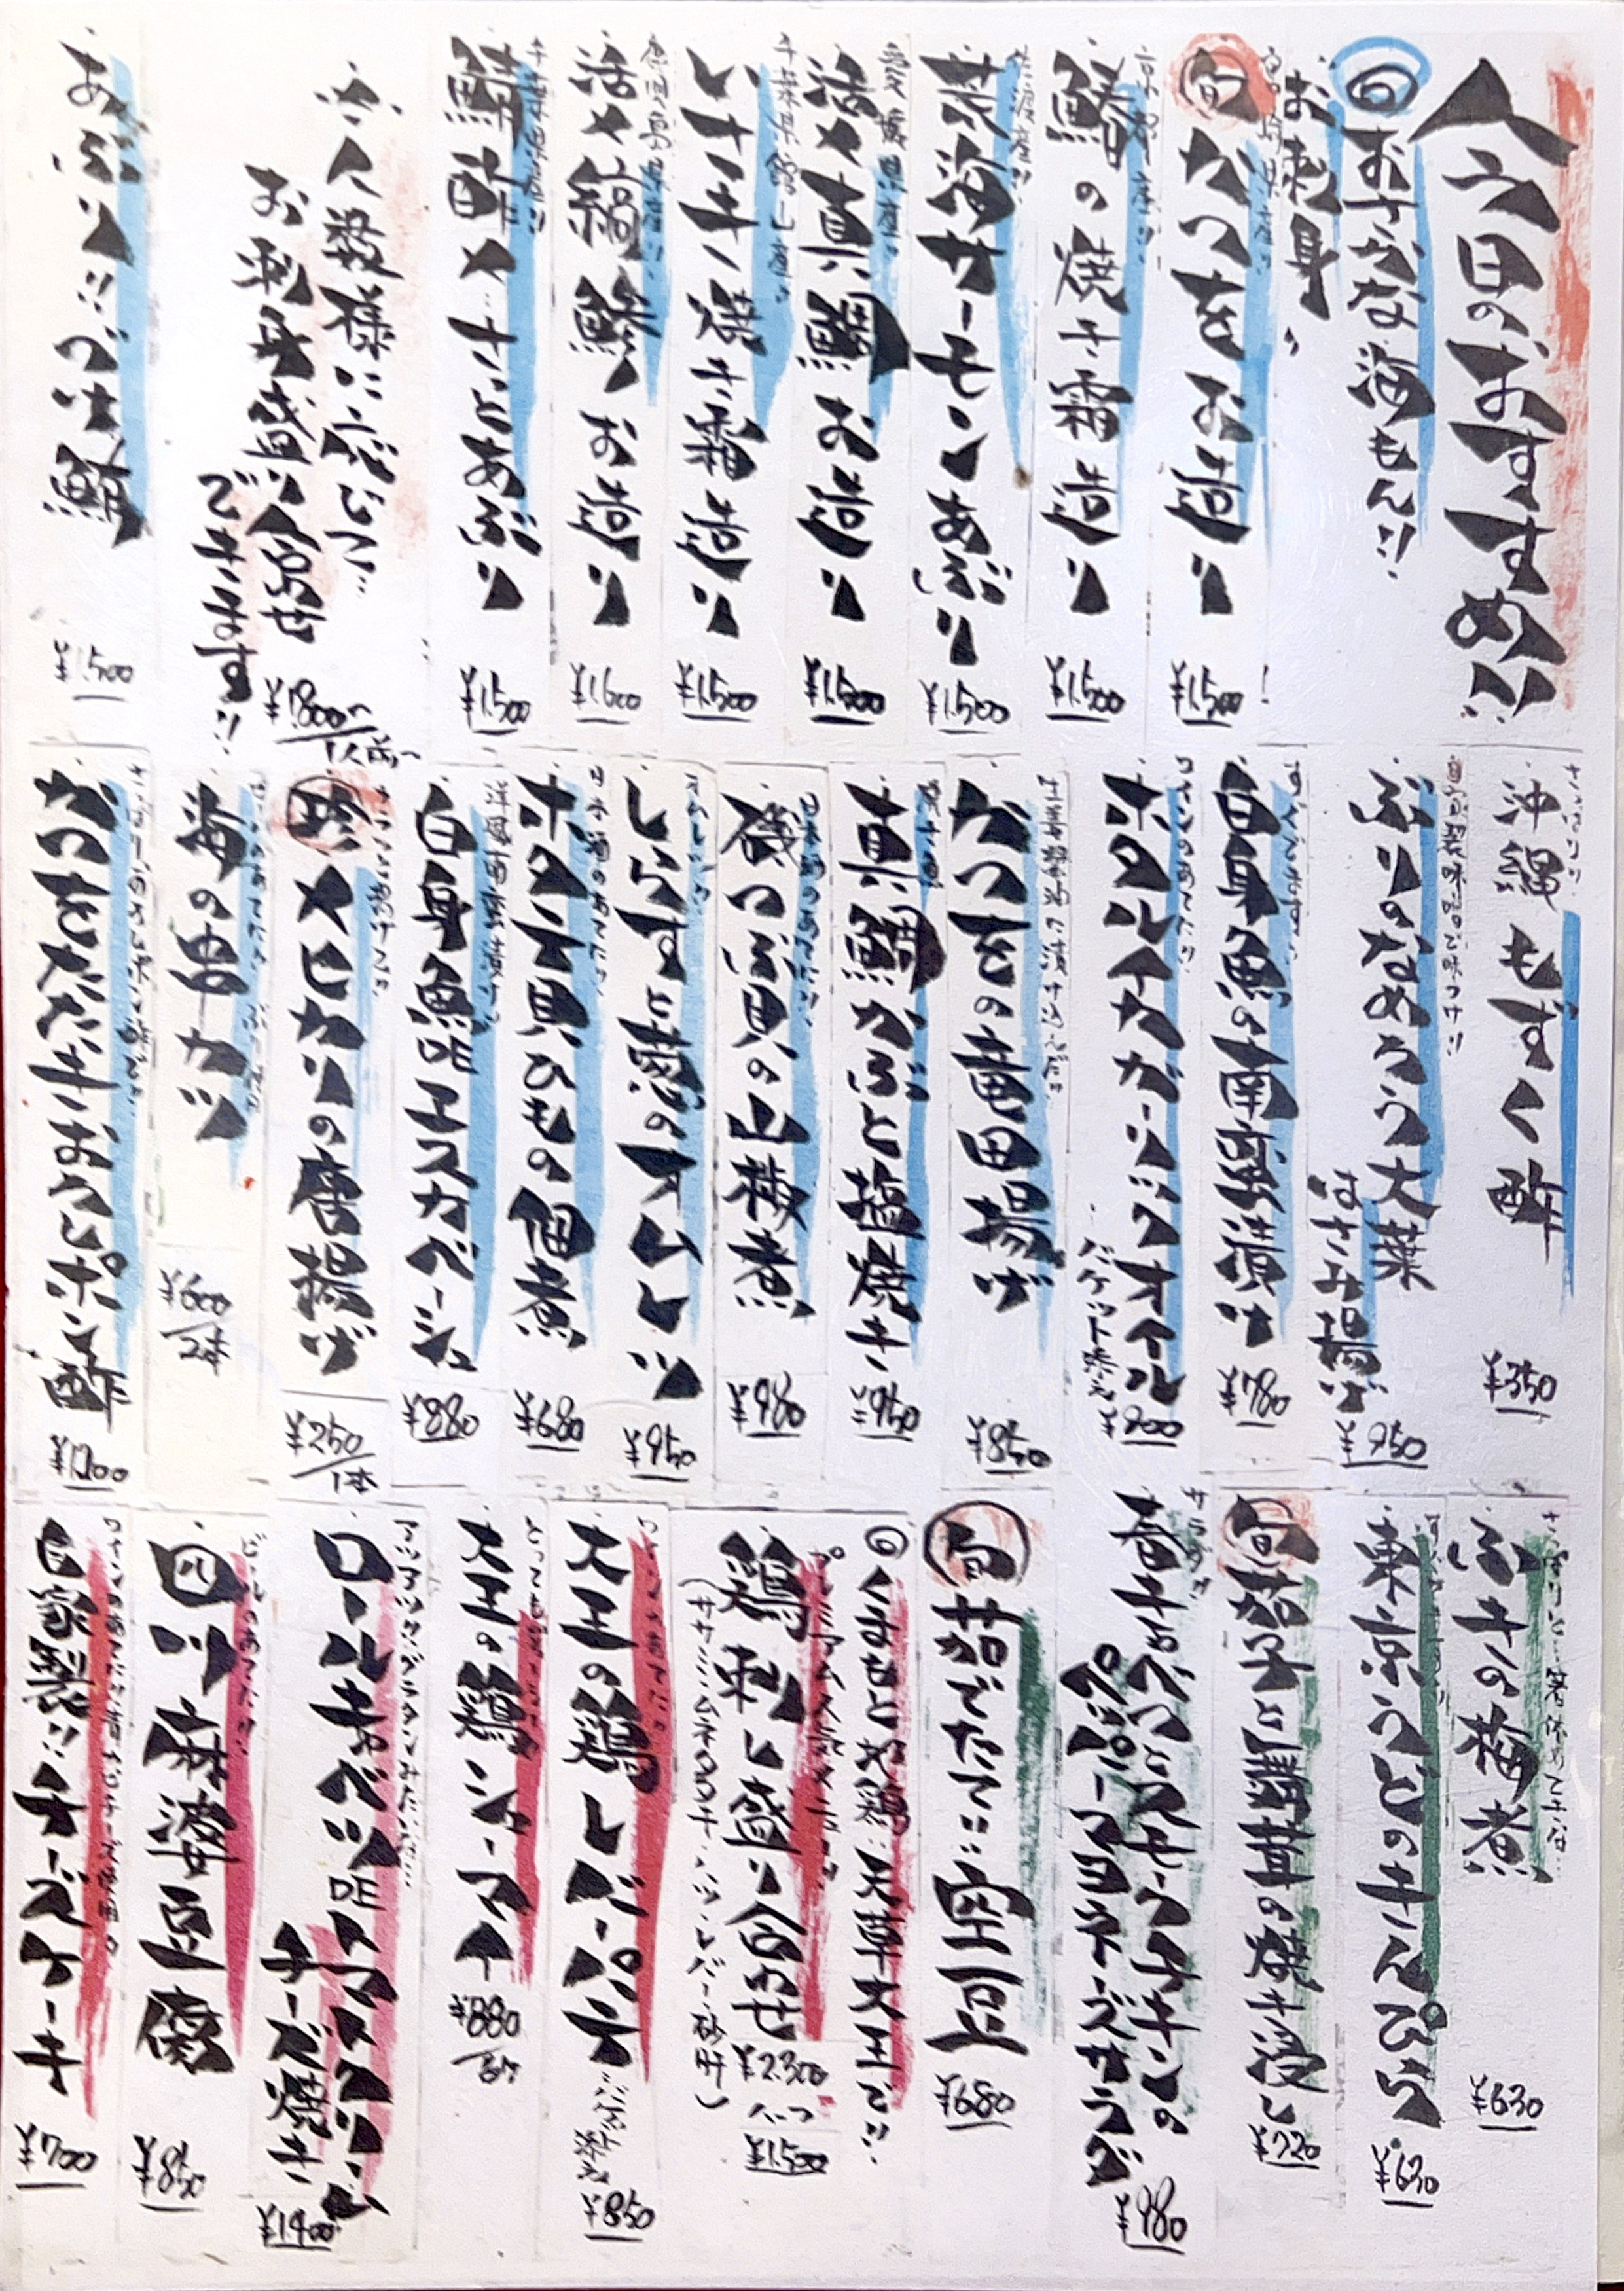 今日のおすすめ!!
回 おすすめな海もん!!
お刺身
旬 かつをお造り
¥1,500
京都産!!
鰆の焼き霜造り
¥1,500
佐渡産!!
荒海サーモンあぶり
¥1,500
愛媛県産!!
活〆真鯛お造り
¥1,500
千葉県館山産!!
いサキ焼き霜造り
¥1,500
鹿児島県産!!
活〆縞鯵お造り
¥1,600
千葉県産!!
鯖酢〆さっとあぶり
¥1,500
人数様に応じて…
お刺身盛り合わせ
できます!!
¥1,800〜
1人前〜
あぶり!!づけ鮪
¥1,500
さっぱり!!
沖縄もずく酢
¥350
自家製味噌で味つけ!!
ぶりのなめろう大葉
はさみ揚げ
¥950
白身魚の南蛮漬け
¥780
ワインのあてに!!
ホタルイカガーリックオイル
バケット添え
¥900
生姜醤油に漬け込んだ!!
かつをの竜田揚げ
¥850
焼き魚
真鯛かぶと塩焼き
¥950
日本酒のあてに!!
磯つぶ貝の山椒煮
¥980
しらすと葱のオムレツ
¥950
日本酒のあてに!!
ホタテ貝ひもの佃煮
¥680
洋風南蛮漬け
白身魚DEエスカベーシュ
¥880
さくっと揚げて!!
珍 メヒカリの唐揚げ
¥250/1本
海の串カツ
¥600/2本
さっぱりおろしポン酢で!!
かつをたたきおろしポン酢
¥1,100
さっぱりと…箸休めですな…
ふきの梅煮
¥630
東京うどのきんぴら
¥630
旬 茄子と舞茸の焼き浸し
¥720
サラダ!!
春キャベツとスモークチキンの
ペッパーマヨネーズサラダ
¥980
旬 茹でたて!!空豆
¥680
回 くまもと地鶏…天草大王で!!
鶏刺し盛り合わせ
¥2,300
ハーフ
¥1,500
(ササミ・ムネ・モモ・ハツ・レバー・砂肝)
ワインのあてに!!
大王の鶏レバーパテ
バケット添え
¥850
大王の鶏シューマイ
¥880
アツアツ!!グラタンみたいな…
ロールキャベツDEトマトクリーム
チーズ焼き
¥1,400
ビールのあてに!!
四川麻婆豆腐
¥850
自家製!!チーズケーキ
¥700